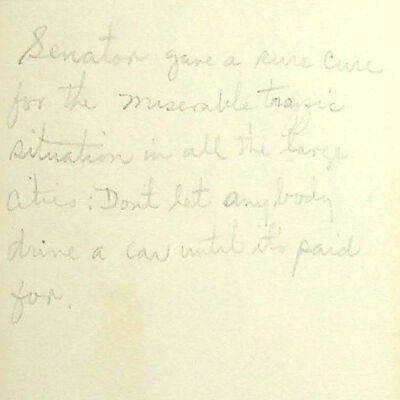 Senator gave a sure cure
for the miserable trafic
situation in all the large
cities: Dont let anybody
drive a car until it's paid
for.